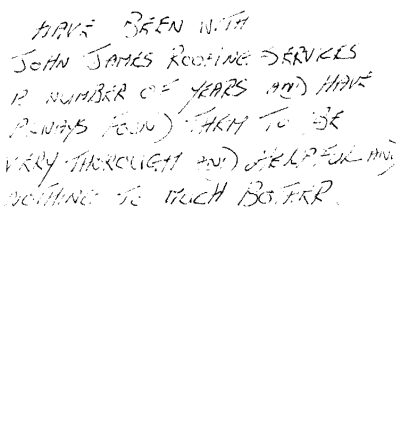 HAVE BEEN WITH
JOHN JAMES ROOFING SERVICES
A NUMBER OF YEARS AND HAVE
ALWAYS FOUND THEM TO BE
VERY THOROUGH AND HELPFUL AND
NOTHING TO MUCH BOTHER.